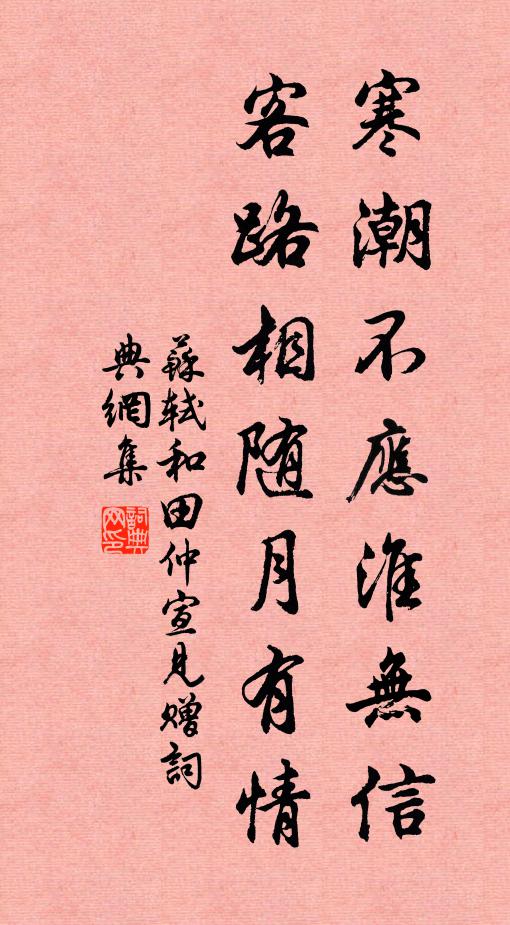 寒潮不應淮無信
客路相随月有情
蘇軾和田仲宣見贈詞
典網集
詞典网印